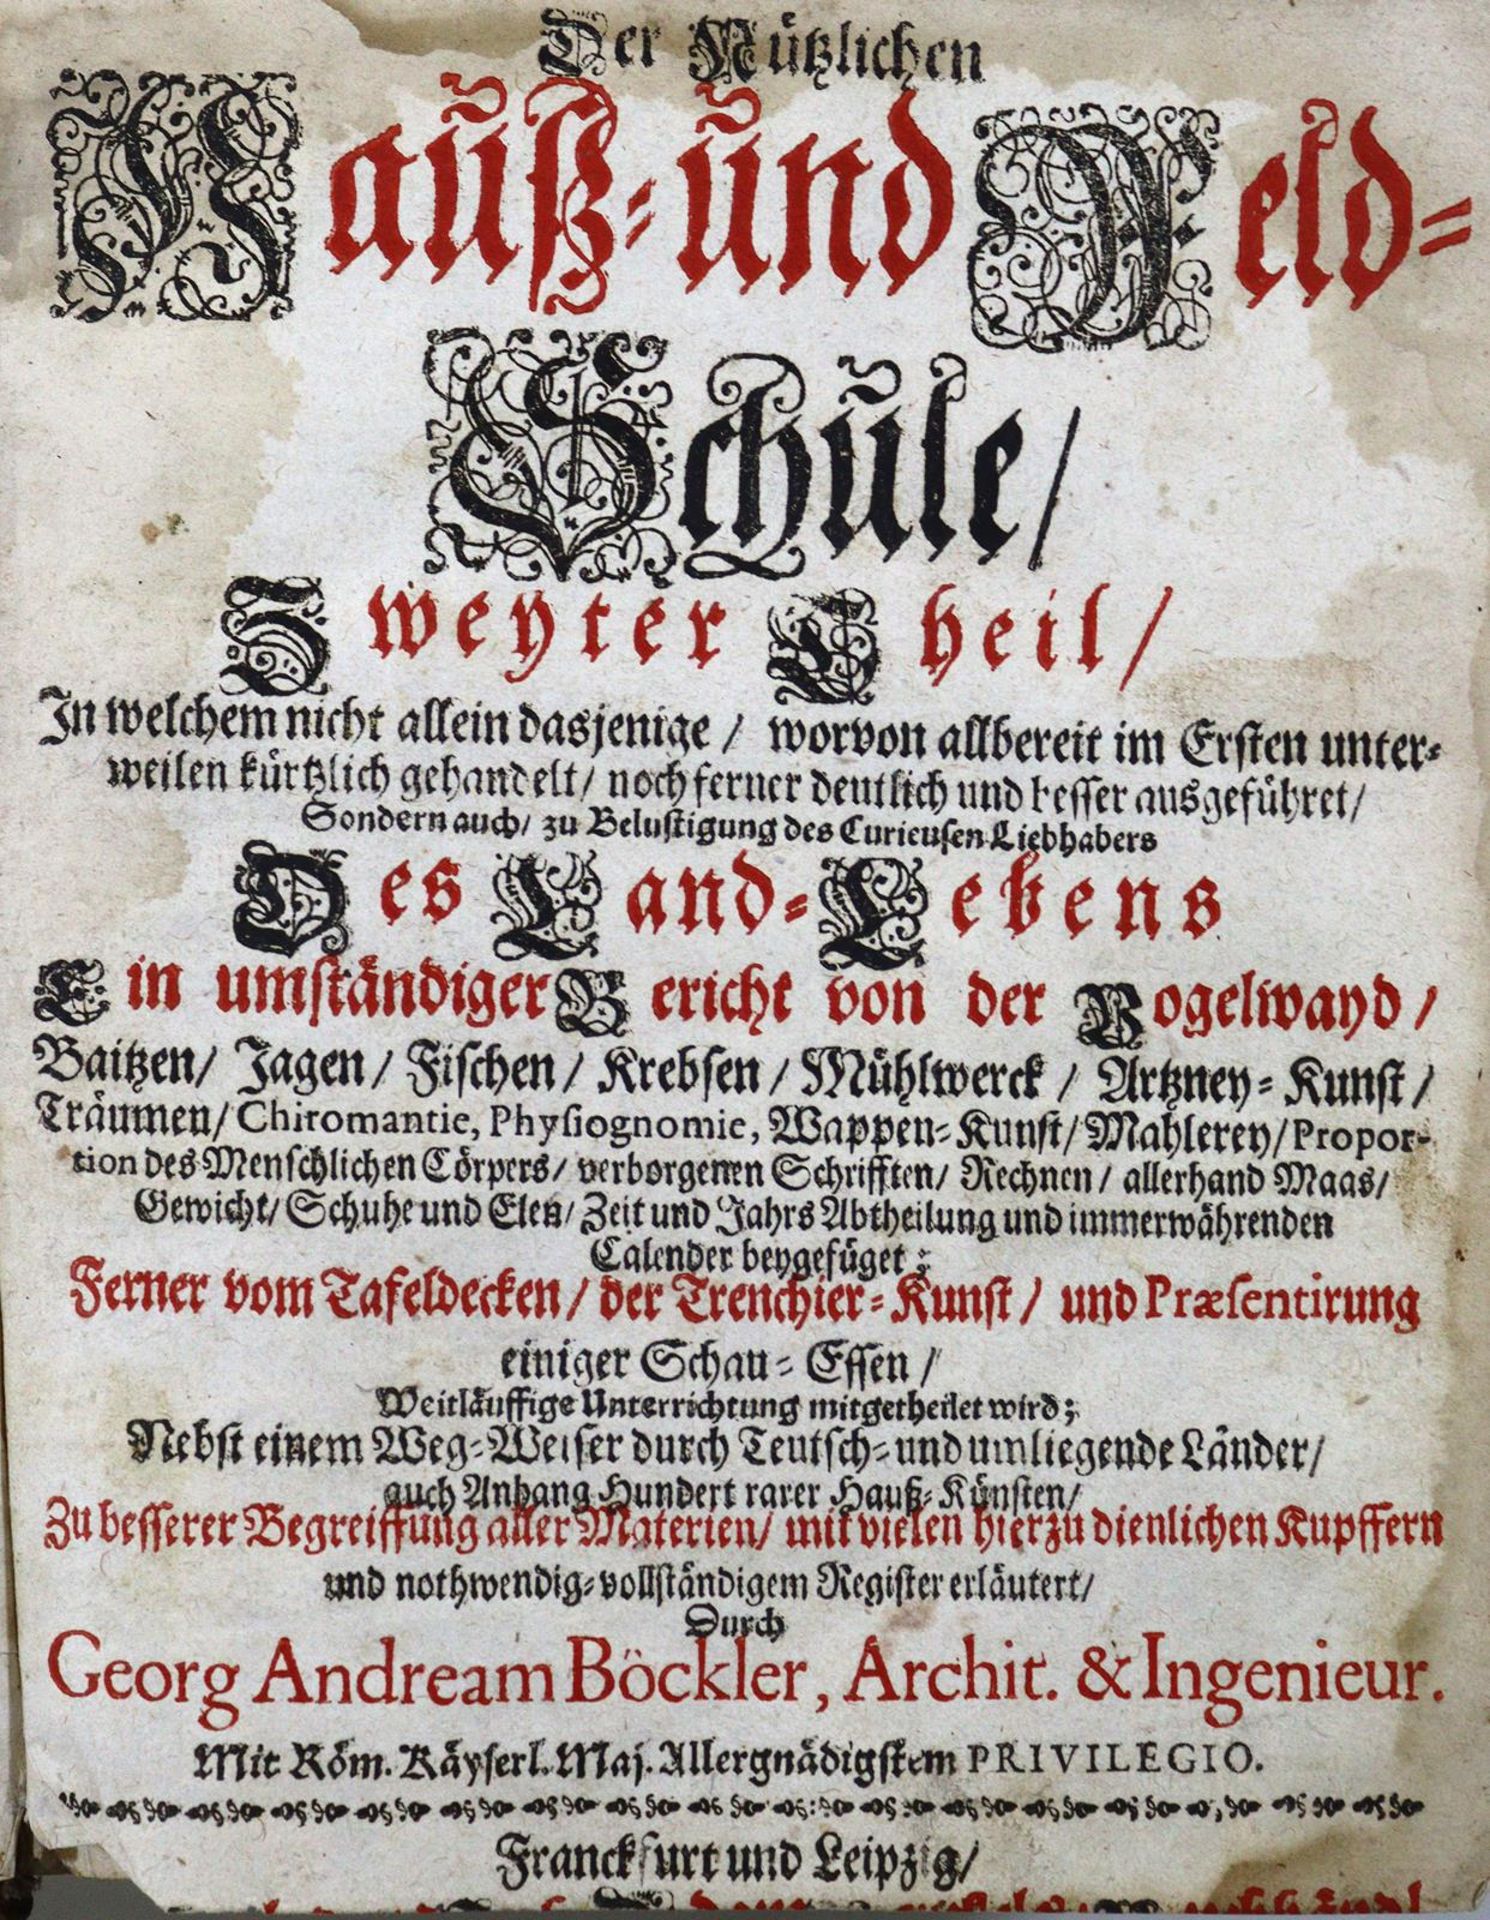 Der Nützlichen
Hauß- und Feld-
Schule/
Zweyter Theil/
In welchem nicht allein dasjenige / worvon allbereit im Ersten unter-
weilen kürtzlich gehandelt/ noch ferner deutlich und besser ausgeführet/
Sondern auch/ zu Belustigung des Curieusen Liebhabers
Des Land-Lebens
Ein umständiger Bericht von der Vogelwayd /
Baitzen/ Jagen / Fischen / Krebsen / Mühlwerck / Artzney-Kunst /
Träumen/ Chiromantie, Physiognomie, Wappen-Kunst/ Mahlerey/ Propor-
tion des Menschlichen Cörpers/ verborgenen Schrifften/ Rechnen / allerhand Maas/
Gewicht/ Schuhe und Elen/ Zeit und Jahrs Abtheilung und immerwährenden
Calender beygefüget;
Ferner vom Tafeldecken / der Trenchier-Kunst / und Præsentirung
einiger Schau-Essen /
Weitläuffige Unterrichtung mitgetheilet wird;
Nebst einem Weg-Weiser durch Teutsch- und umliegende Länder/
auch Anhang Hundert rarer Hauß-Künsten/
Zu besserer Begreiffung aller Materien/ mit vielen hierzu dienlichen Kupffern
und nothwendig-vollständigem Register erläutert/
Durch
Georg Andream Böckler, Archit. & Ingenieur.
Mit Röm. Käyserl. Maj. Allergnädigstem PRIVILEGIO.
Franckfurt und Leipzig/